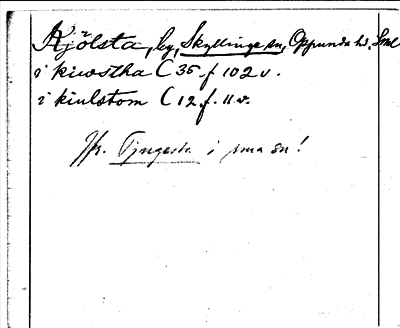 Kjölsta, by, Skyllinge sn, Oppunda hd, Sml
i kiwstha C 35 f 102 v.
i kiulstom C 12 f. 11 v.
Jfr. Tjngesta i sma sn!